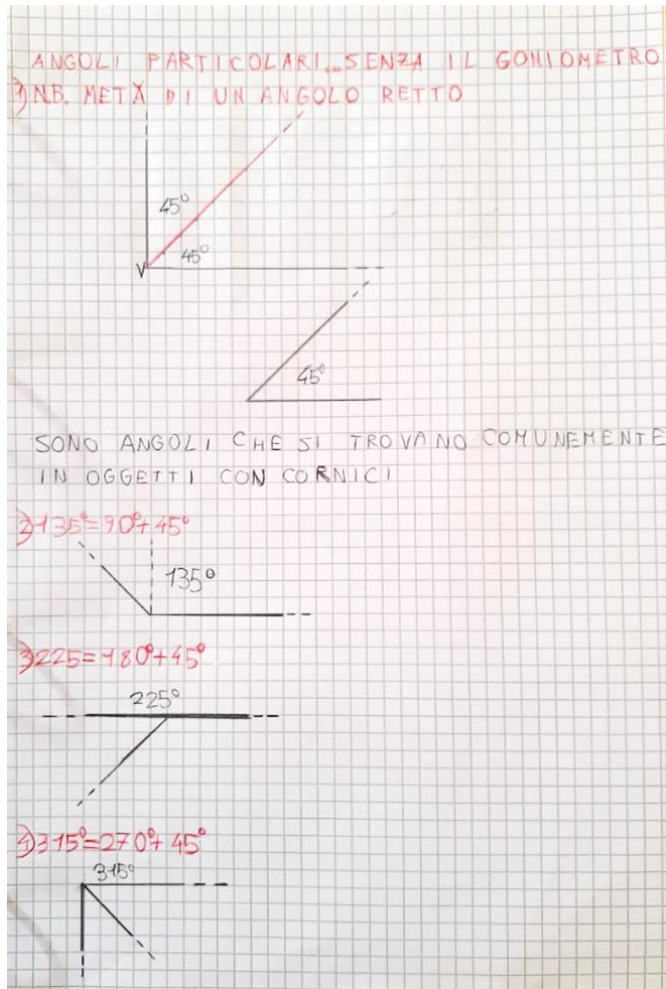 ANGOLI PARTICOLARI...SENZA IL GONIOMETRO
1) N.B. METÀ DI UN ANGOLO RETTO
45°
45°
V
45°
SONO ANGOLI CHE SI TROVANO COMUNEMENTE
IN OGGETTI CON CORNICI
2) 135°=90°+45°
135°
3) 225=180°+45°
225°
4) 315°=270°+45°
315°